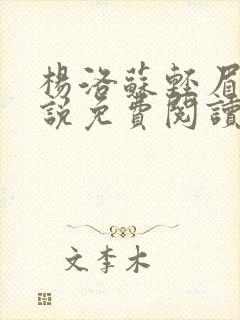 楊洛蘇輕眉
說免費閱讀
文李木